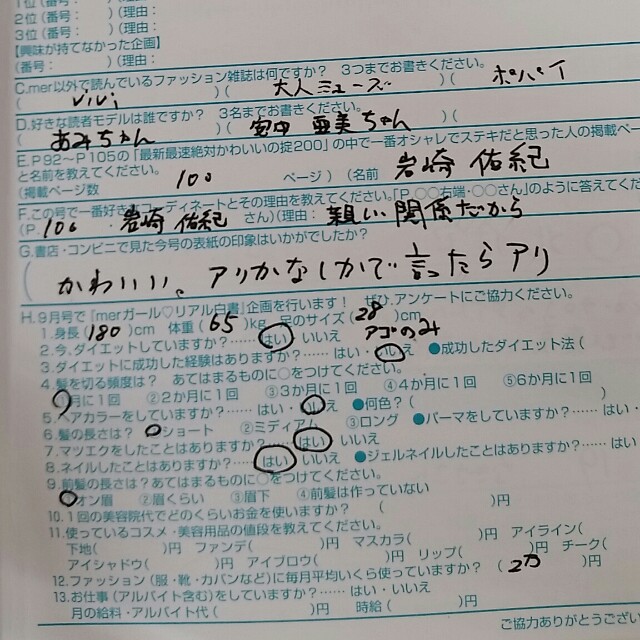 1位（番号：　　）（理由：
2位（番号：　　）（理由：
3位（番号：　　）（理由：
【興味が持てなかった企画】
（番号：　　）（理由：
C.mer以外で読んでいるファッション雑誌は何ですか？　3つまでお書きください。
（ ViVi ）（ 大人ミューズ ）（ ポパイ
D.好きな読者モデルは誰ですか？　3名までお書きください。
（ あみちゃん ）（ 安中 亜美ちゃん ）（
E.P92～P105の「最新最速絶対かわいいの掟200」の中で一番オシャレでステキだと思った人の掲載ペー
と名前を教えてください。
（掲載ページ数　100　ページ）（名前　岩崎 佑紀
F.この号で一番好きなコーディネートとその理由を教えてください。「P.○○右端・○○さん」のように答えてくだ
（P. 100 ・ 岩崎 佑紀 さん）（理由： 親しい関係だから
G.書店・コンビニで見た今号の表紙の印象はいかがでしたか？
（ かわいいい。アリかなしかで言ったらアリ
H.9月号で『merガール♡リアル白書』企画を行います！　ぜひ、アンケートにご協力ください。
1.身長（180）cm　体重（65）kg　足のサイズ（28）cm
2.今、ダイエットしていますか？……はい・いいえ　アゴのみ
3.ダイエットに成功した経験はありますか？……はい・いいえ　●成功したダイエット法（
4.髪を切る頻度は？　あてはまるものに○をつけてください。
月に1回　②2か月に1回　③3か月に1回　④4か月に1回　⑤6か月に1回
5.ヘアカラーをしていますか？……はい・いいえ　●何色？（　　）
6.髪の長さは？　ショート　②ミディアム　③ロング　●パーマをしていますか？……はい
7.マツエクをしたことはありますか？……はい・いいえ
8.ネイルしたことはありますか？……はい・いいえ　●ジェルネイルしたことはありますか？……はい
9.前髪の長さは？あてはまるものに○をつけてください。
オン眉　②眉くらい　③眉下　④前髪は作っていない
10.1回の美容院代でどのくらいお金を使いますか？　（　　）円
11.使っているコスメ・美容用品の値段を教えてください。
下地（　　）円　ファンデ（　　）円　マスカラ（　　）円　アイライン（
アイシャドウ（　　）円　アイブロウ（　　）円　リップ（　　）円　チーク（
12.ファッション（服・靴・カバンなど）に毎月平均いくら使っていますか？　（ 2万 ）円
13.お仕事（アルバイト含む）をしていますか？……はい・いいえ
月の給料・アルバイト代（　　）円　時給（　　）円
ご協力ありがとうござい